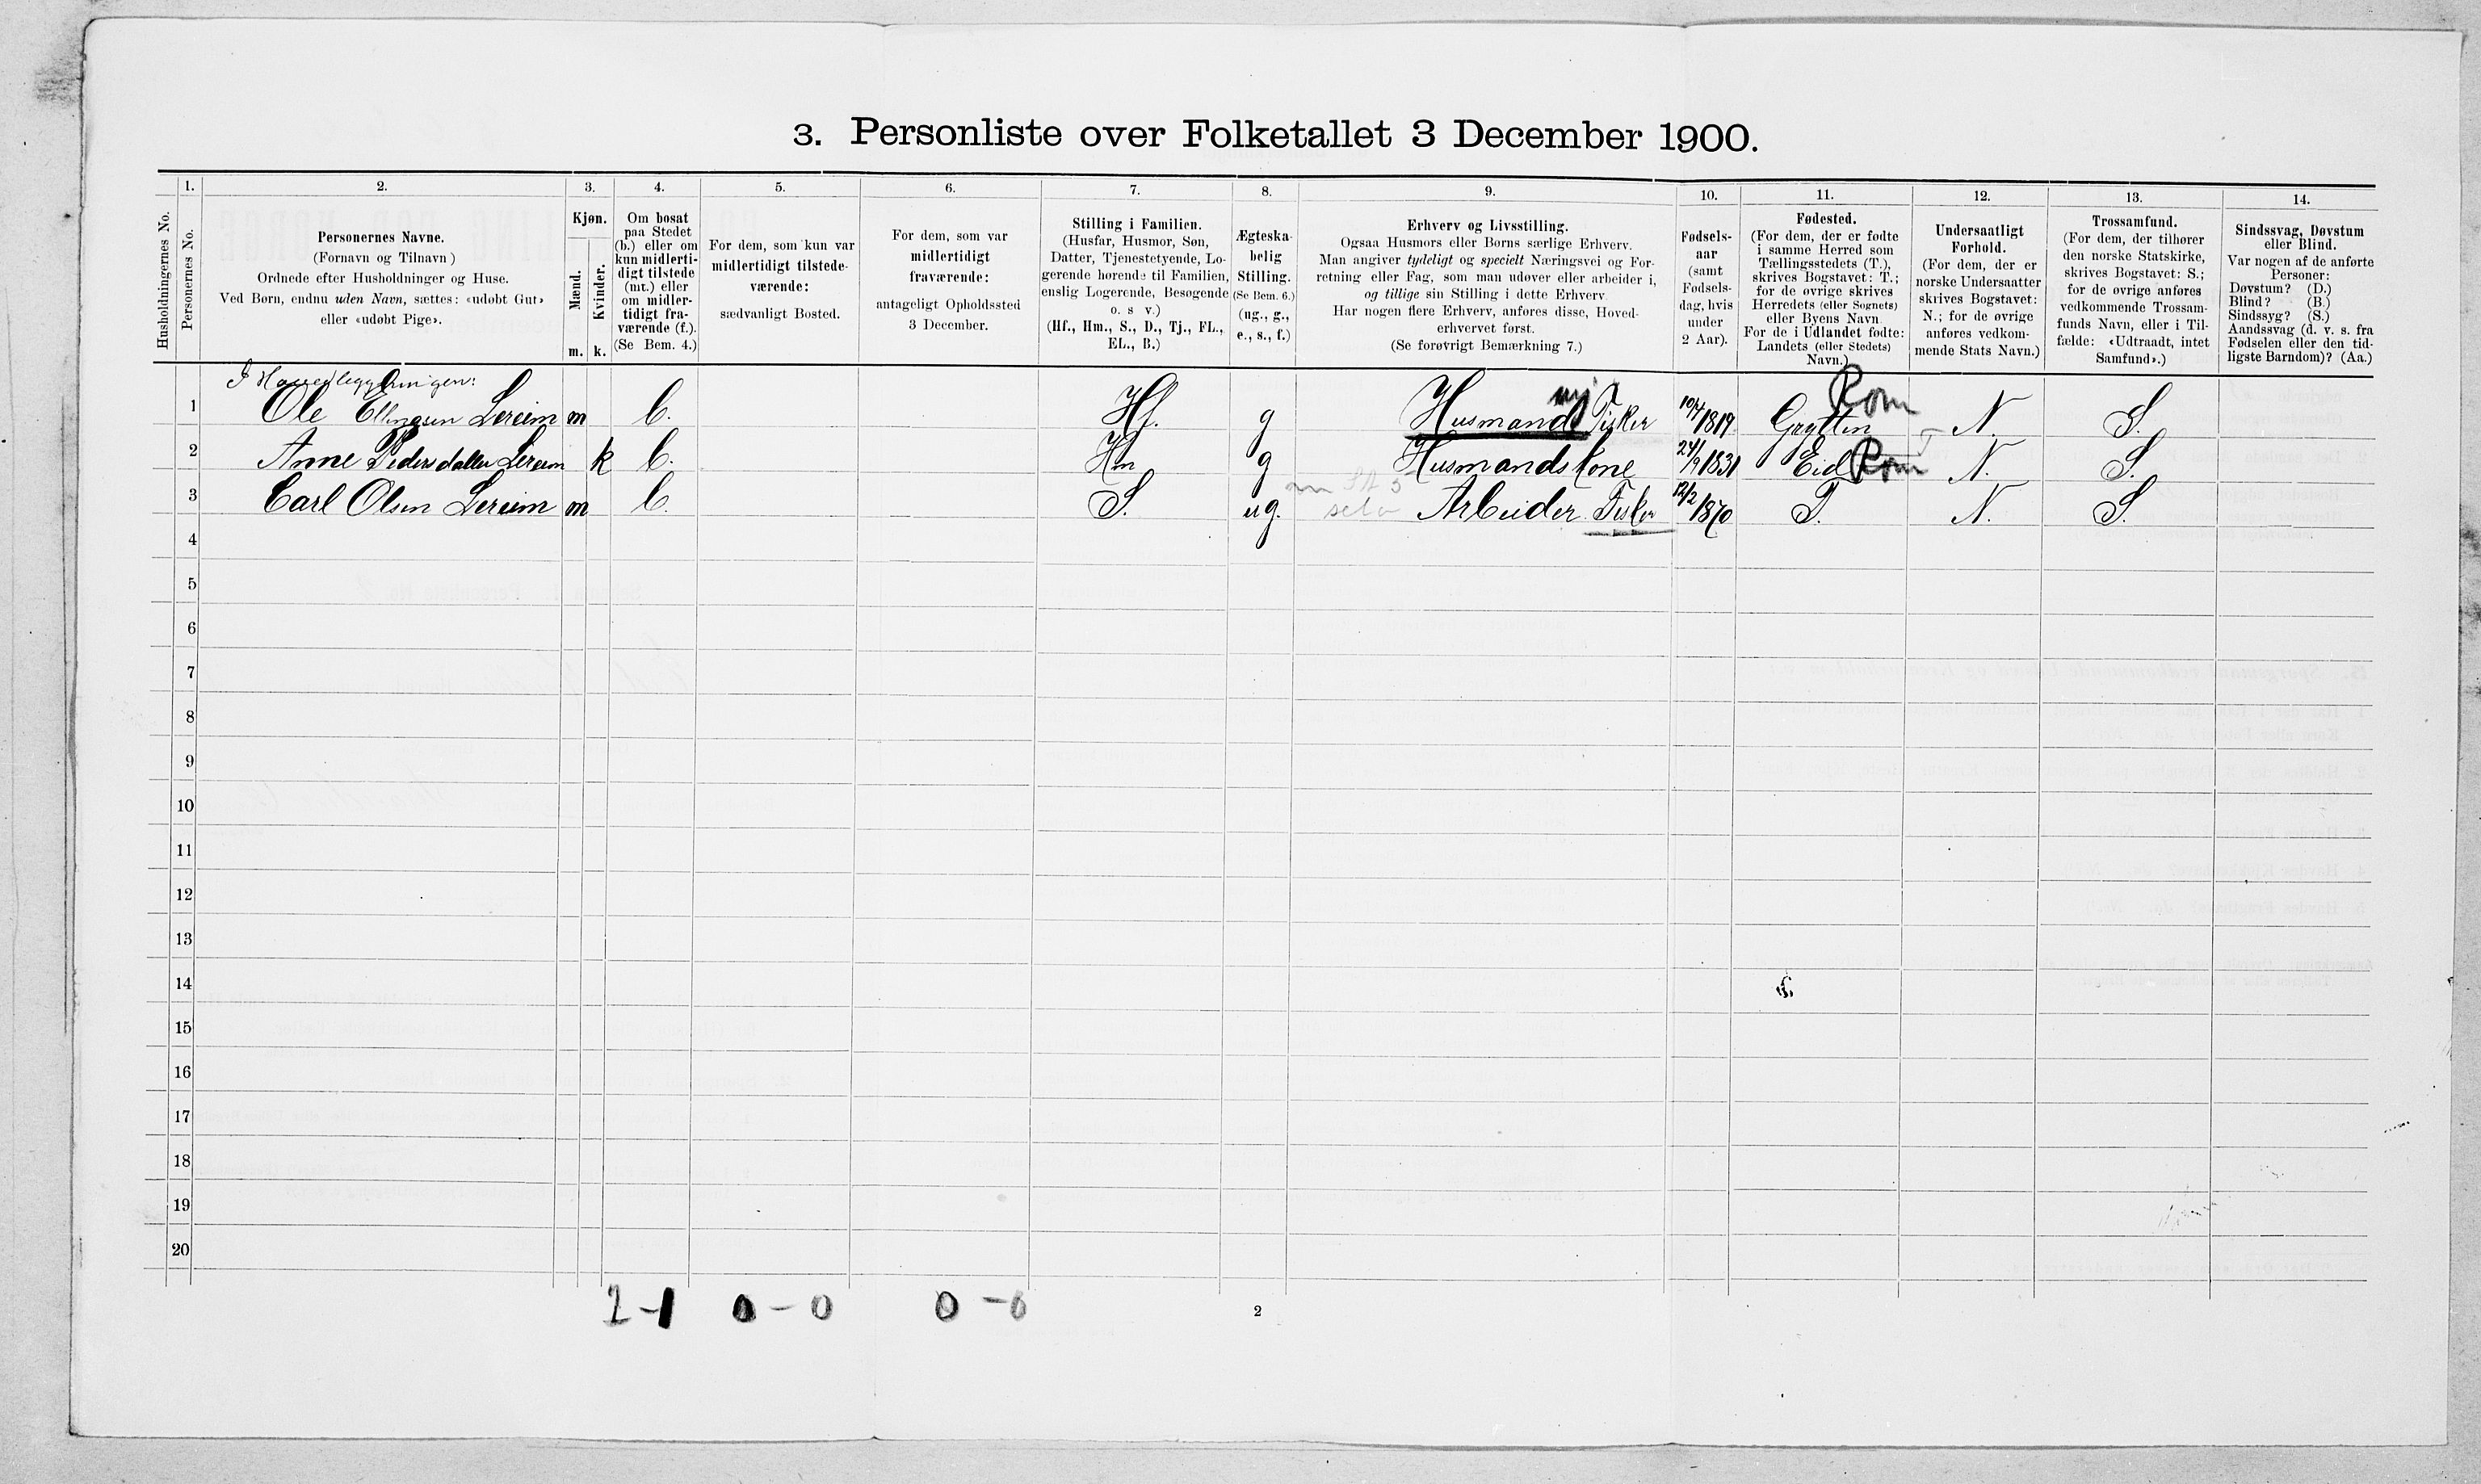 3. Personliste over Folketallet 3 December 1900.
Husholdningernes No.
1.
Personernes No.
2.
Personernes Navne.
(Fornavn og Tilnavn)
Ordnede efter Husholdninger og Huse.
Ved Børn, endnu uden Navn, sættes: «udøbt Gut»
eller «udøbt Pige».
3.
Kjøn.
Mænd.
Kvinder.
m. k.
4.
Om bosat
paa Stedet
(b.) eller om
kun midlerti-
digt tilstede
(mt.) eller
om midler-
tidigt fra-
værende (f.).
(Se Bem. 4.)
5.
For dem, som kun var
midlertidigt tilstede-
værende:
sædvanligt Bosted.
6.
For dem, som var
midlertidigt
fraværende:
antageligt Opholdssted
3 December.
7.
Stilling i Familien.
(Husfar, Husmor, Søn,
Datter, Tjenestetyende, Lo-
gerende hørende til Familien,
enslig Logerende, Besøgende
o. s v.)
(Hf., Hm., S., D., Tj., FL.,
EL., B.)
8.
Ægteska-
belig
Stilling.
(Se Bem. 6.)
(ug., g.,
e., s., f.)
9.
Erhverv og Livsstilling.
Ogsaa Husmors eller Børns særlige Erhverv.
Man angiver tydeligt og specielt Næringsvei og For-
retning eller Fag, som man udøver eller arbeider i,
og tillige sin Stilling i dette Erhverv.
Har nogen flere Erhverv, anføres disse, Hoved-
erhvervet først.
(Se forøvrigt Bemærkning 7.)
10.
Fødsels-
aar
(samt
Fødsels-
dag, hvis
under
2 Aar).
11.
Fødested.
(For dem, der er fødte
i samme Herred som
Tællingsstedets (T.),
skrives Bogstavet: T.;
for de øvrige skrives
Herredets (eller Sognets)
eller Byens Navn
For de i Udlandet fødte:
Landets (eller Stedets)
Navn.)
12.
Undersaatligt
Forhold.
(For dem, der er
norske Undersaatter
skrives Bogstavet:
N.; for de øvrige
anføres vedkom-
mende Stats Navn.)
13.
Trossamfund.
(For dem, der tilhører
den norske Statskirke,
skrives Bogstavet: S.;
for de øvrige anføres
vedkommende Trossam-
funds Navn, eller i Til-
fælde: «Udtraadt, intet
Samfund».)
14.
Sindssvag, Døvstum
eller Blind.
Var nogen af de anførte
Personer:
Døvstum? (D.)
Blind? (B.)
Sindssyg? (S.)
Aandssvag (d. v. s. fra
Fødselen eller den tid-
ligste Barndom)? (Aa.)
I Hovedbygningen:
1 Ole Ellingsen Lereim m b. Hf. g Husmand Fisker 10/4 1819 Grytten Rom N. S.
2 Anne Pedersdatter Lereim k b. Hm g Husmandskone 24/9 1831 Eid Rom N. S.
3 Carl Olsen Lereim m b. S. ug. Arbeider Fisker 12/2 1870 T. N. S.
4
5
6
7
8
9
10
11
12
13
14
15
16
17
18
19
20
2-1 0-0 0-0
2